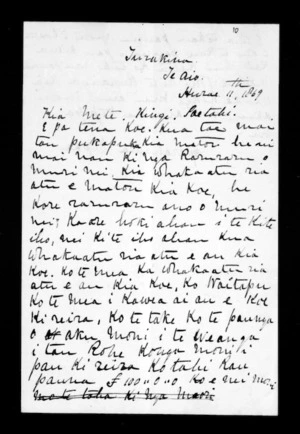 10
Turakina.
Te Aio.
Hurae 11th 1869
Kia Mete. Kingi. Paetahi.
E pa tena koe. Kua tae mai
tau pukapuka kia matou he ui
mai nau ki nga Raruraru o
muri nei, Kia whakaatu ria
atu e Matou Kia Koe, he
kore raruraru ano o muri
nei, Kaore hoki ahau i te Kite
iho, nei ki te iho ahau Kua
whakaatu ria atu e au kia
Koe. Ko te mea ka whakaatu ria
atu e au Kia Koe, Ko Waitapu
Ko te mea i Kawea ai au e Koe
Ki reira, Ko te take Ko te paunga
o aku Moni i te Weanga
i tau Rohe Konga Moni i
pau ki reira Ko tahi Rau
pauna £100.0.0. Ko e nei moni